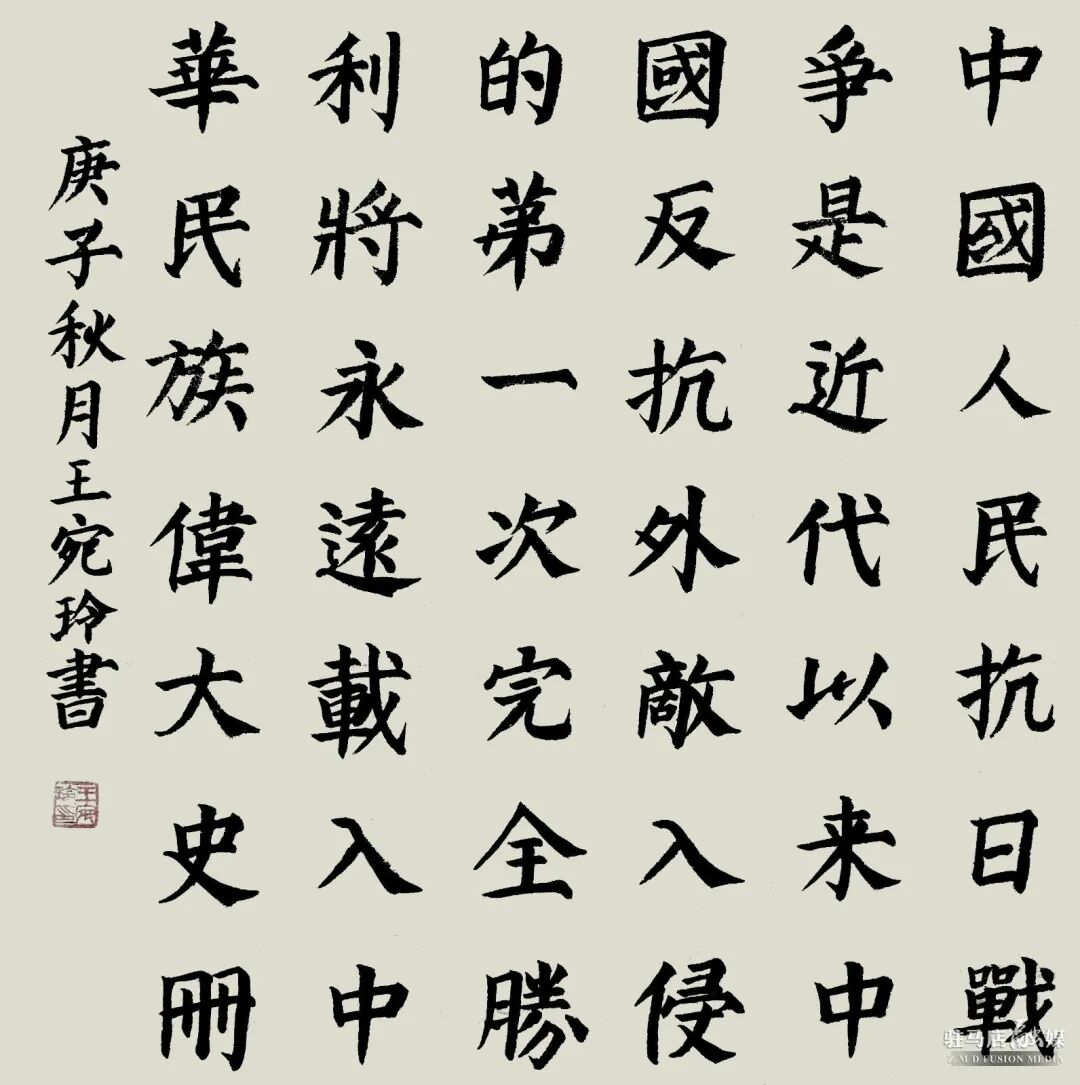 中國人民抗日戰
爭是近代以来中
國反抗外敵入侵
的第一次完全勝
利將永遠載入中
華民族偉大史冊
庚子秋月王宛玲書
驻马店融媒
Z.M.D FUSION MEDIA